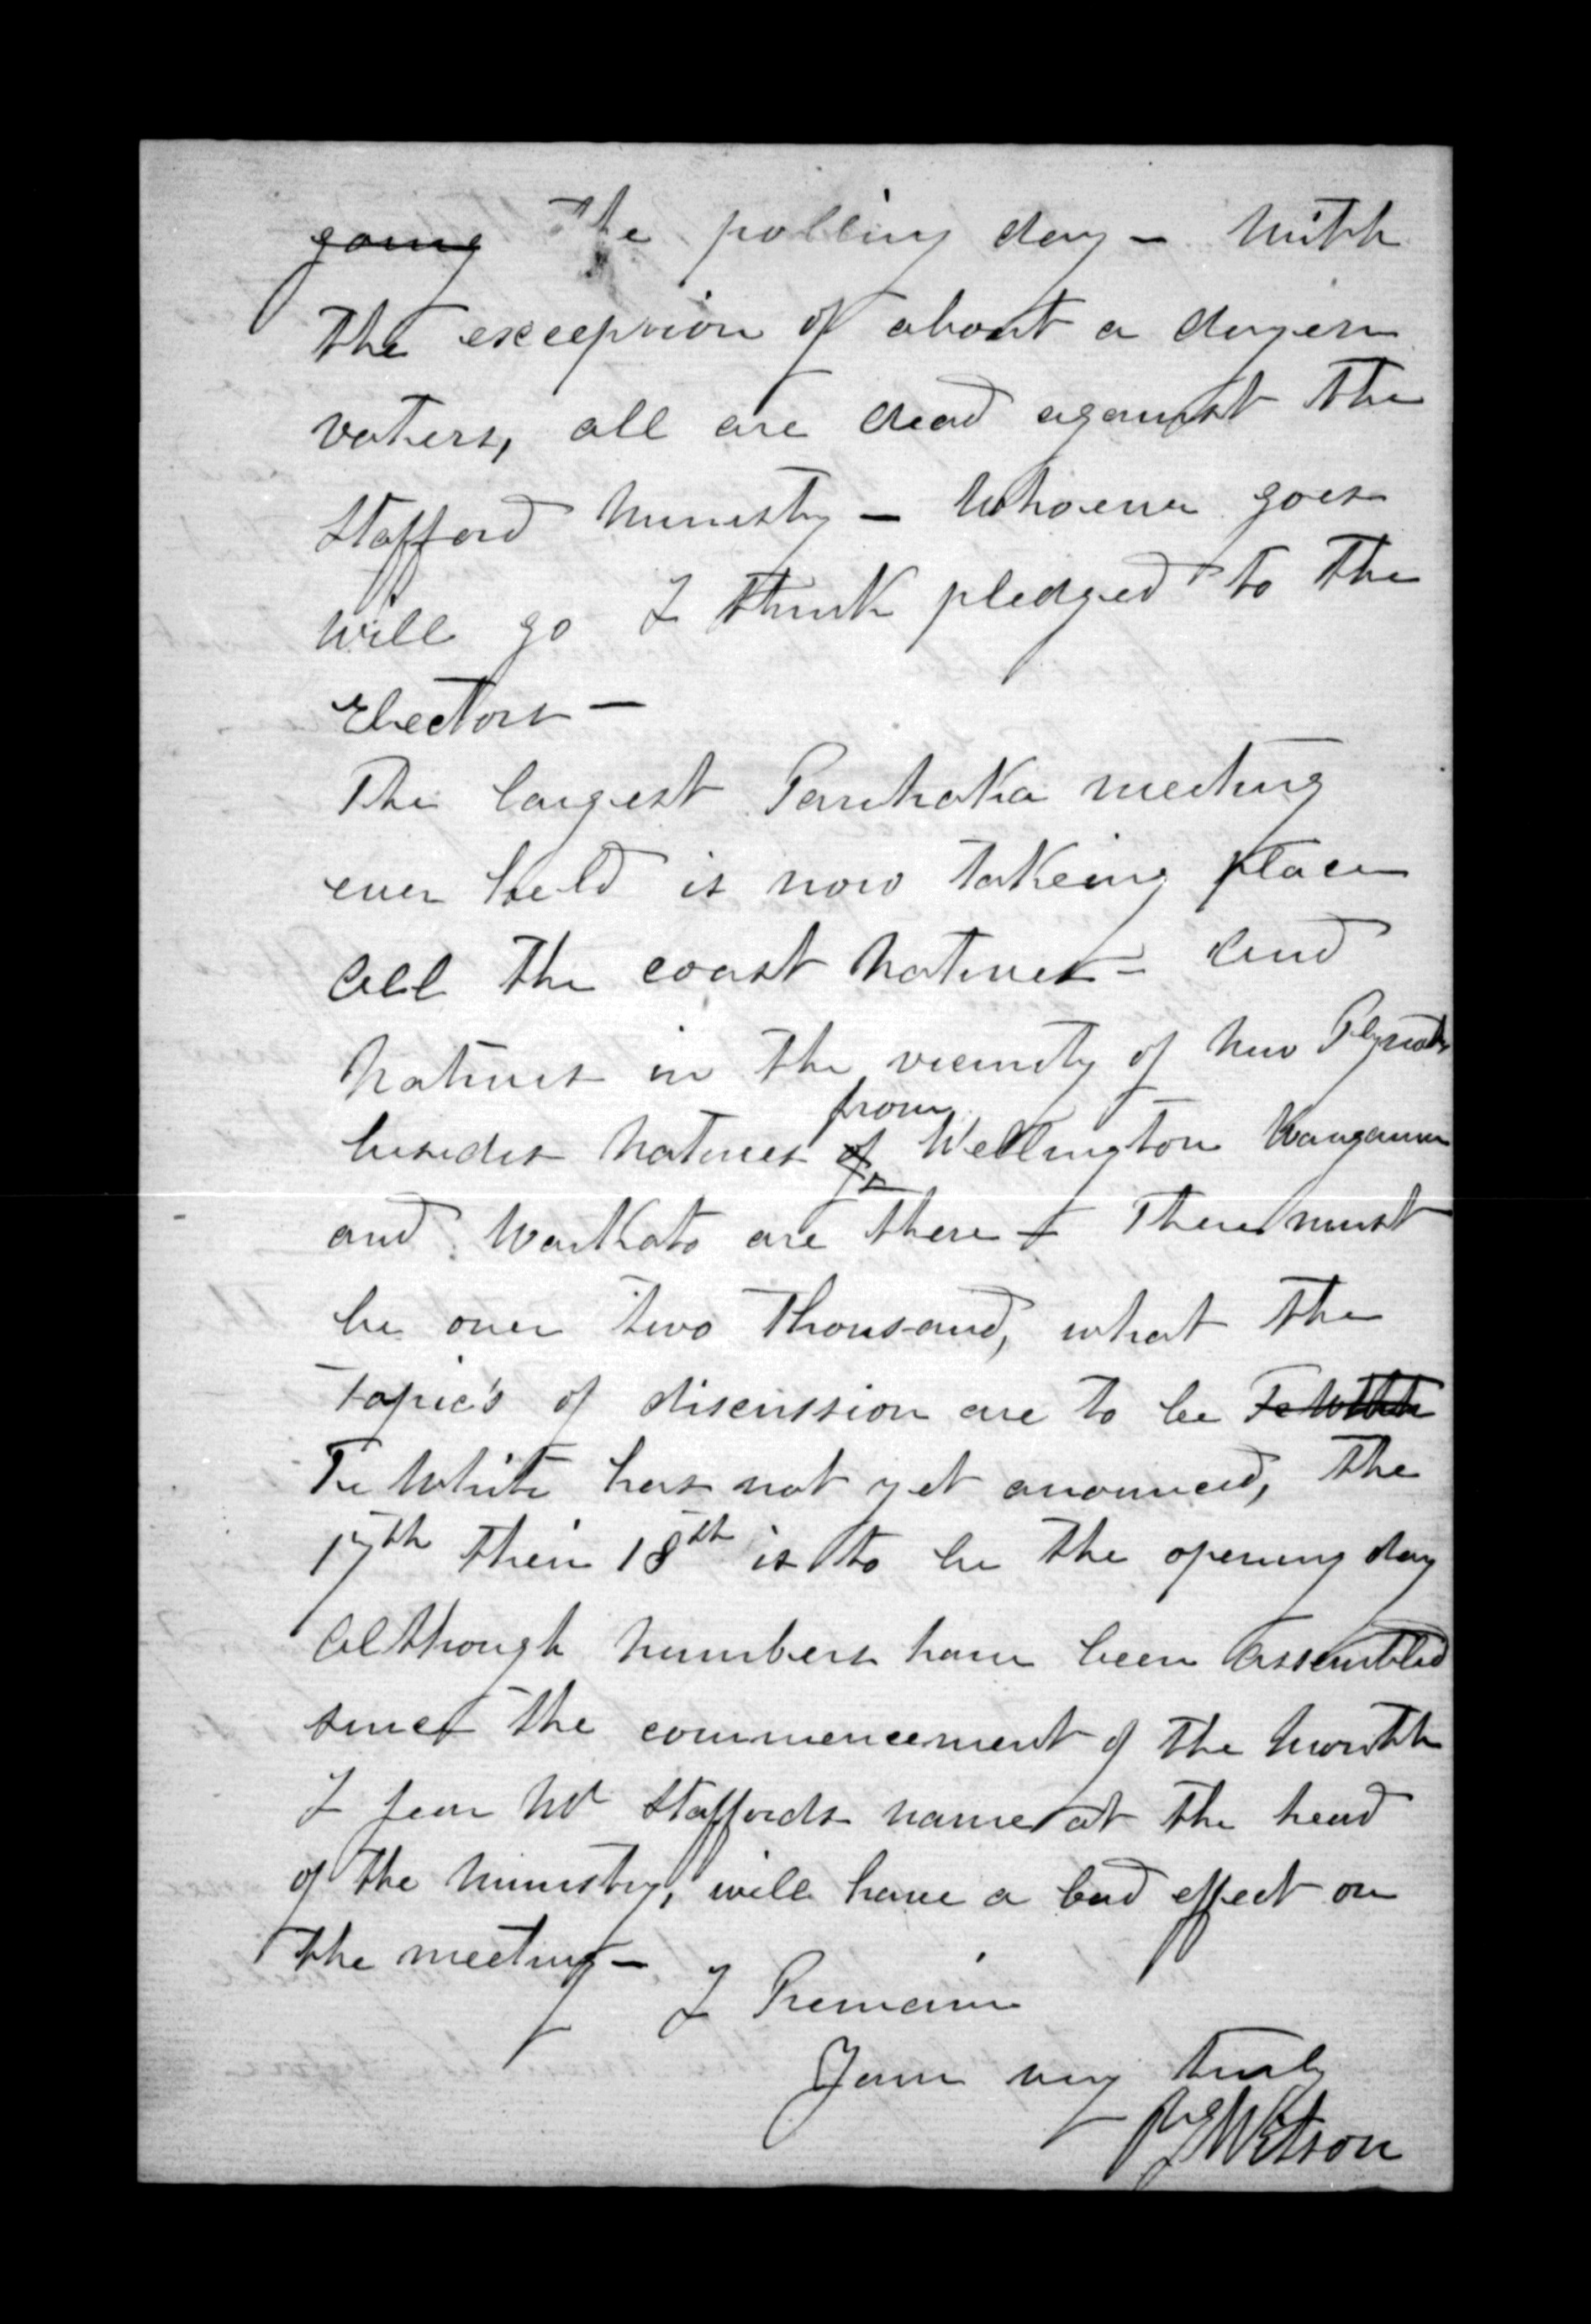 going the polling day – With
the exception of about a dozen
voters, all are dead against the
Stafford Ministry – Whoever goes
will go I think pledged to the
Electors –
The largest Parihaka meeting
ever held is now takeing place
All the coast Natives – and
Natives in the vicinity of New Plymouth
besides Natives of from Wellington Wanganui
and Waikato are there – There must
be over two thousand, what the
topic's of discussion are to be
Te Whiti has not yet anounced, the
17th their 18th is to be the opening day
Although numbers have been assembled
since the commencement of the Month
I fear Mr Staffords name at the head
of the Ministry, will have a bad effect on
the meeting –
I Remain
Yours very truly
Wilson